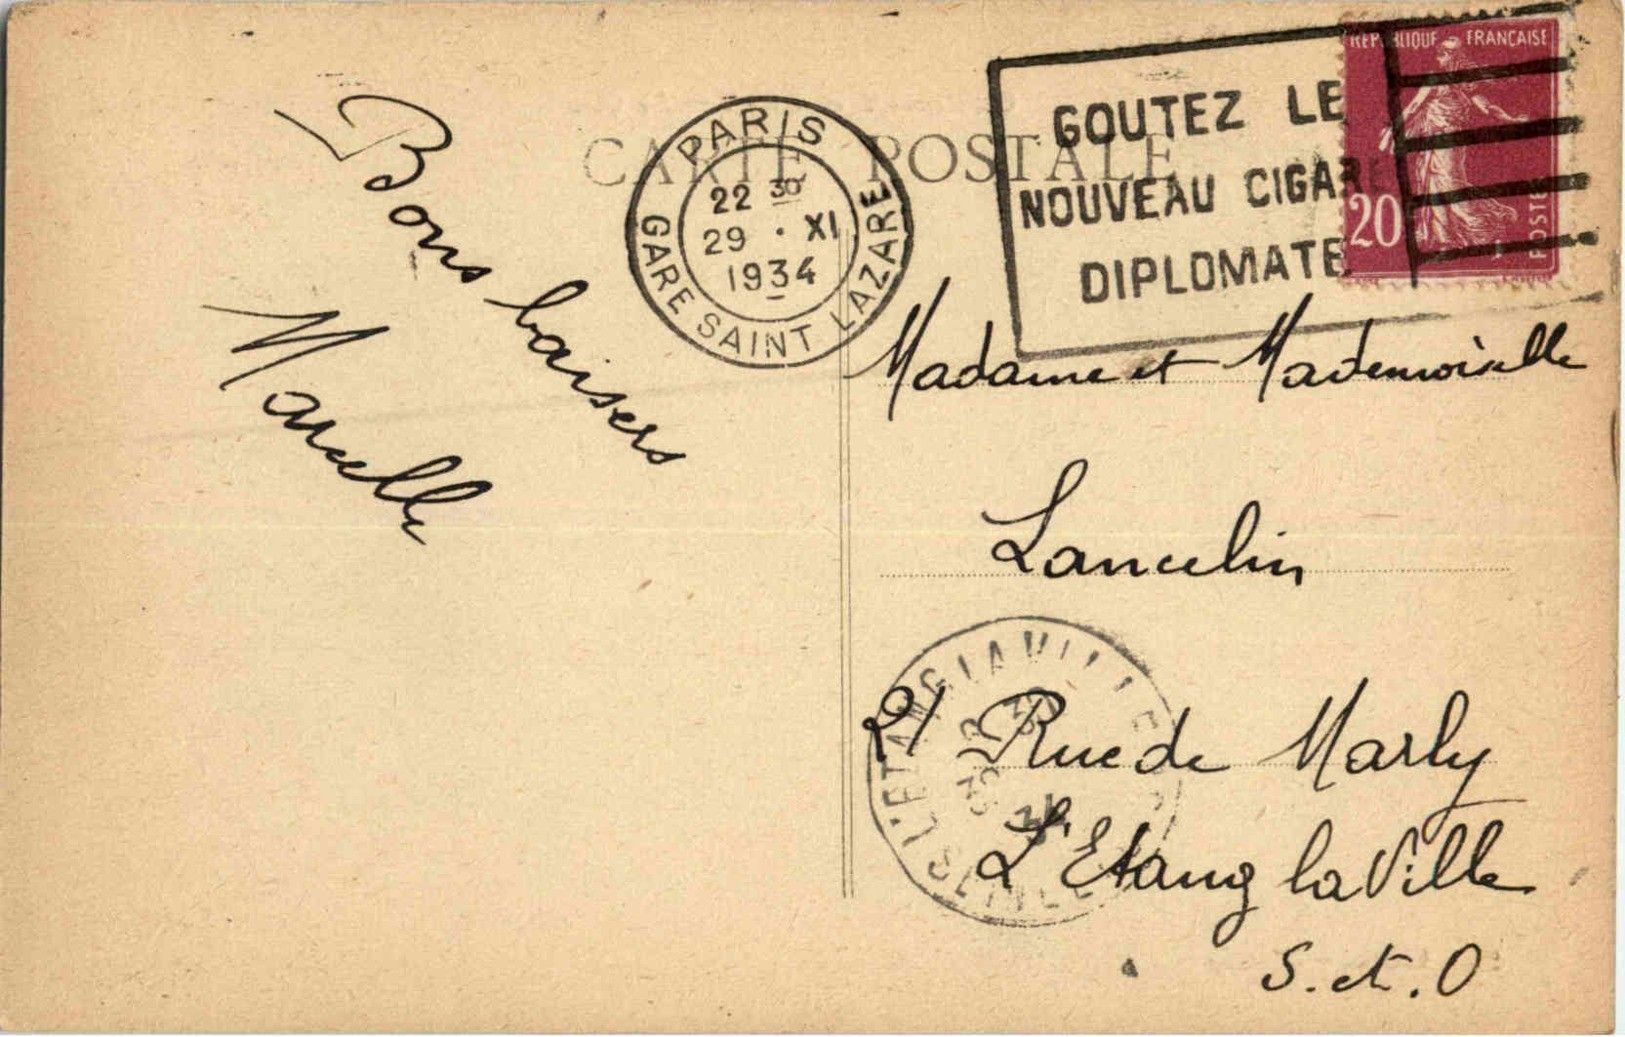 CARTE POSTALE
PARIS
22 30
29 • XI
1934
GARE SAINT LAZARE
GOUTEZ LE
NOUVEAU CIGARE
DIPLOMATE
REPUBLIQUE FRANÇAISE
20
POSTES
Bons baisers
Marcelle
Madame et Mademoiselle
Lancelin
21 Rue de Marly
L'Etang la Ville
S. et. O
L'ETANG LA VILLE